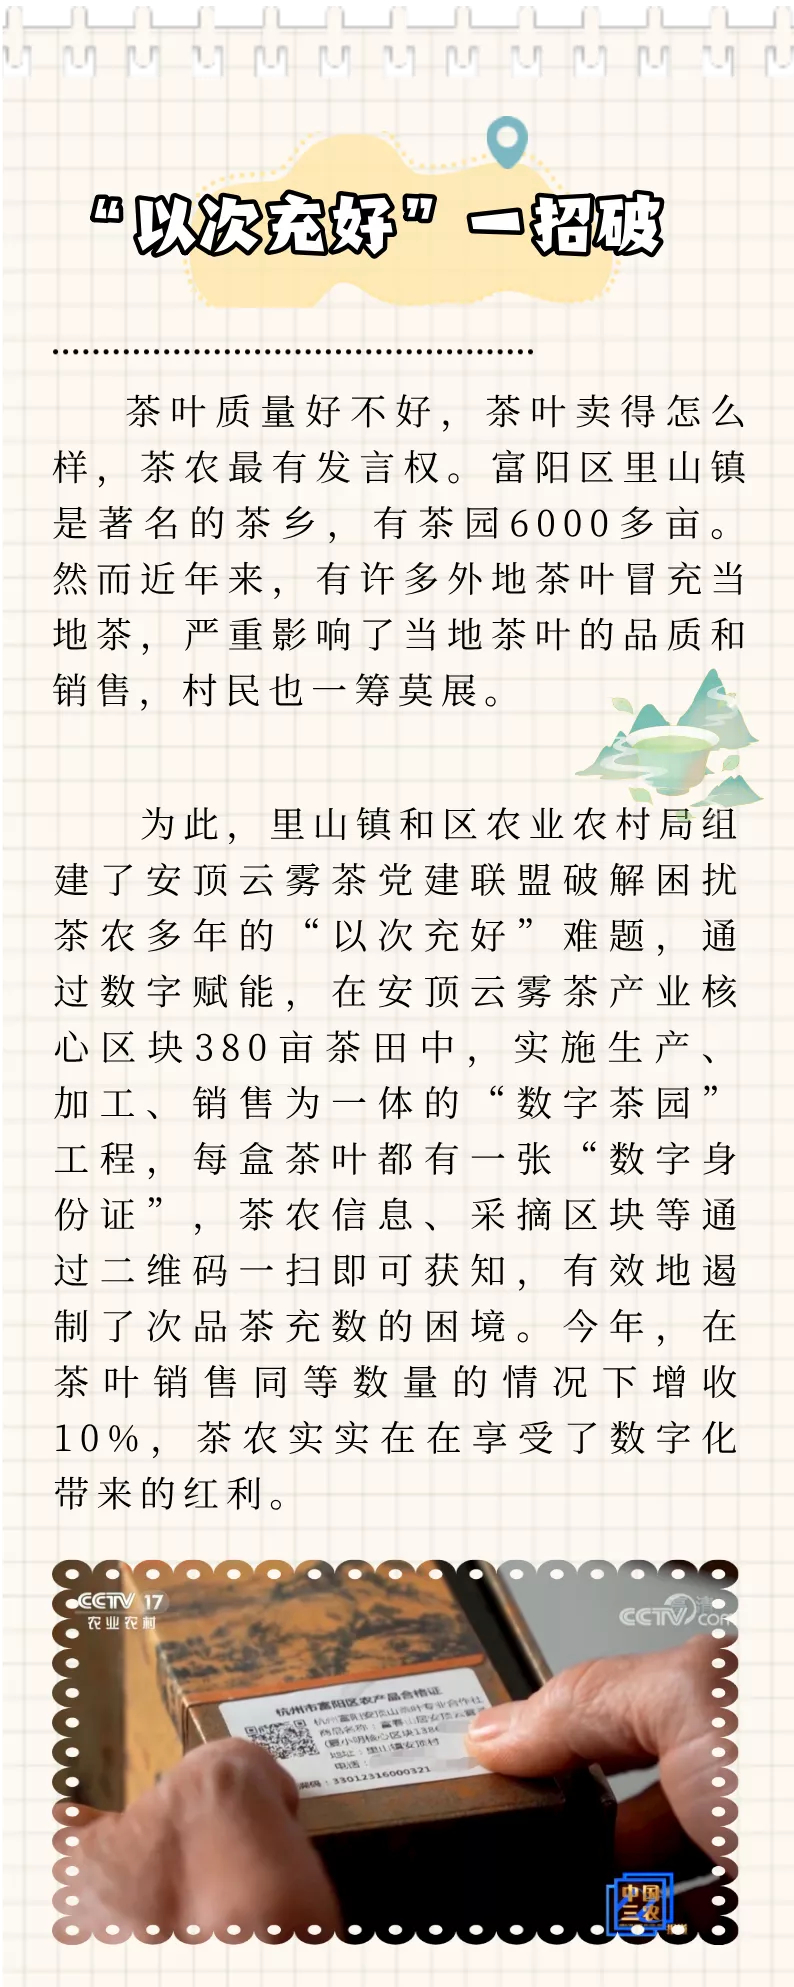 “以次充好”一招破
茶叶质量好不好，茶叶卖得怎么
样，茶农最有发言权。富阳区里山镇
是著名的茶乡，有茶园6000多亩。
然而近年来，有许多外地茶叶冒充当
地茶，严重影响了当地茶叶的品质和
销售，村民也一筹莫展。
为此，里山镇和区农业农村局组
建了安顶云雾茶党建联盟破解困扰
茶农多年的“以次充好”难题，通
过数字赋能，在安顶云雾茶产业核
心区块380亩茶田中，实施生产、
加工、销售为一体的“数字茶园”
工程，每盒茶叶都有一张“数字身
份证”，茶农信息、采摘区块等通
过二维码一扫即可获知，有效地遏
制了次品茶充数的困境。今年，在
茶叶销售同等数量的情况下增收
10%，茶农实实在在享受了数字化
带来的红利。
CCTV 17
农业农村
CCTV.com 高清
杭州市富阳区农产品合格证
杭州富阳安顶山茶叶专业合作社
商品名称：富春山居安顶云雾
核心区块138
地址：里山镇安顶村
电话：
编码：33012316000321
中国
三农